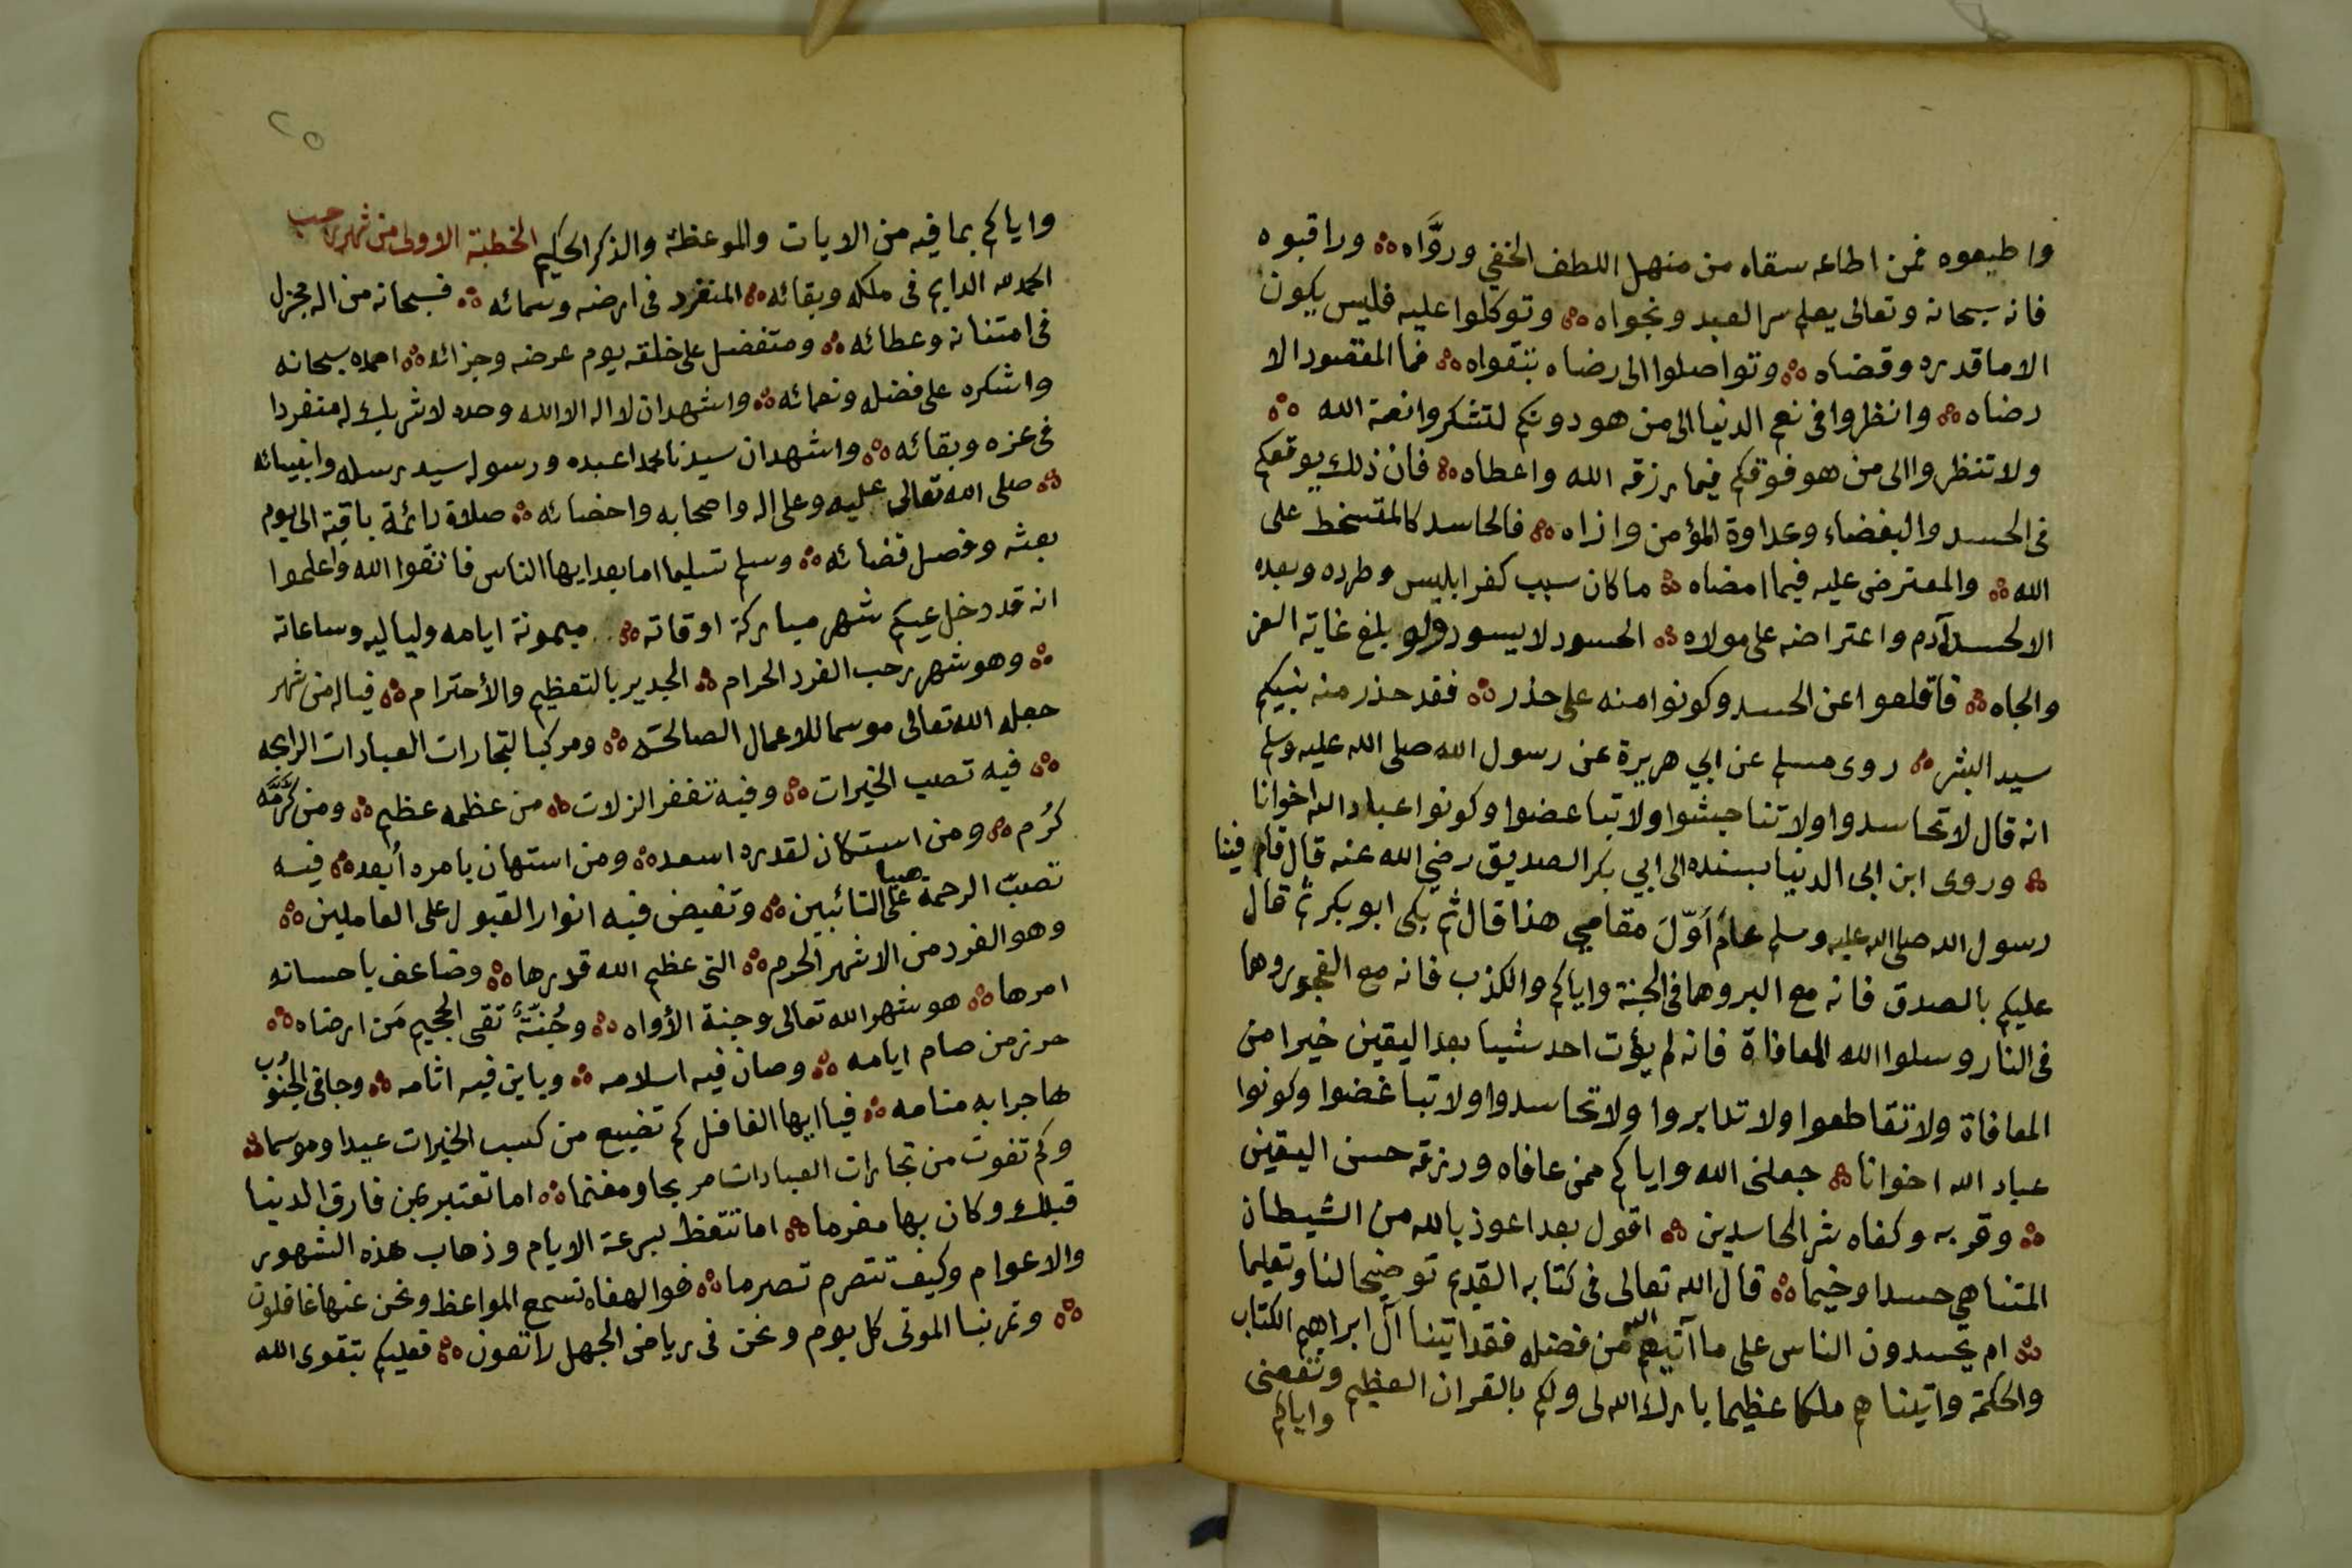 واطيعوه فمن اطاعه سقاه من منهل اللطف الخفي وروَّاه ۞ وراقبوه
فانه سبحانه وتعالى يعلم سر العبد ونجواه ۞ وتوكلوا عليه فليس يكون
الا ما قدره وقضاه ۞ وتواصلوا الى رضاه بتقواه ۞ فما المقصود الا
رضاه ۞ وانظروا في نعم الدنيا الى من هو دونكم لتشكروا نعمة الله ۞
ولا تنظروا الى من هو فوقكم فيما رزقه الله واعطاه ۞ فان ذلك يوقعكم
في الحسد والبغضاء وعداوة المؤمن واذاه ۞ فالحاسد كالمتسخط على
الله ۞ والمعترض عليه فيما امضاه ۞ ما كان سبب كفر ابليس وطرده وبعده
الا لحسد آدم واعتراضه على مولاه ۞ الحسود لا يسود ولو بلغ غاية العز
والجاه ۞ فاقلعوا عن الحسد وكونوا منه على حذر ۞ فقد حذر منه نبيكم
سيد البشر ۞ روى مسلم عن ابي هريرة عن رسول الله صلى الله عليه وسلم
انه قال لا تحاسدوا ولا تناجشوا ولا تباغضوا وكونوا عباد الله اخوانا
۞ وروى ابن ابي الدنيا بسنده الى ابي بكر الصديق رضي الله عنه قال قام فينا
رسول الله صلى الله عليه وسلم عامَ أوّلَ مقامي هذا قال ثم بكى ابو بكر ثم قال
عليكم بالصدق فانه مع البر وهما في الجنة واياكم والكذب فانه مع الفجور وهما
في النار وسلوا الله المعافاة فانه لم يؤت احد شيا بعد اليقين خيرا من
المعافاة ولا تقاطعوا ولا تدابروا ولا تحاسدوا ولا تباغضوا وكونوا
عباد الله اخوانا ۞ جعلني الله واياكم ممن عافاه ورزقه حسن اليقين
۞ وقربه وكفاه شر الحاسدين ۞ اقول بعد اعوذ بالله من الشيطان
المتناهي حسدا وخيما ۞ قال الله تعالى في كتابه القديم توضيحا لنا وتعليما
۞ ام يحسدون الناس على ما آتيهم الله من فضله فقد اتينا آل ابراهيم الكتاب
والحكمة واتيناهم ملكا عظيما بارك الله لي ولكم بالقران العظيم ونفعني
واياكم
٢٥
واياكم بما فيه من الايات والموعظة والذكر الحكيم الخطبة الاولى من شهر رجب
الحمد لله الدايم في ملكه وبقائه ۞ المتفرد في ارضه وسمائه ۞ فسبحانه من اله مجزل
في امتنانه وعطائه ۞ ومتفضل على خلقه يوم عرضه وجزائه ۞ احمده سبحانه
واشكره على فضله ونعمائه ۞ واشهد ان لا اله الا الله وحده لا شريك له متفردا
في عزه وبقائه ۞ واشهد ان سيدنا محمدا عبده ورسوله سيد رسله وانبيائه
۞ صلى الله تعالى عليه وعلى اله واصحابه واحضائه ۞ صلاة دائمة باقية الى يوم
بعثه وفصل قضائه ۞ وسلم تسليما اما بعد ايها الناس فاتقوا الله واعلموا
انه قد دخل عيكم شهر مباركة اوقاته ۞ ميمونة ايامه ولياليه وساعاته
۞ وهو شهر رجب الفرد الحرام ۞ الجدير بالتعظيم والأحترام ۞ فياله من شهر
جعله الله تعالى موسما للاعمال الصالحه ۞ ومركبا لتجارات العبادات الرابحه
۞ فيه تصب الخيرات ۞ وفيه تغفر الزلات ۞ من عظمه عظيم ۞ ومن كرَّمَه
كرُم ۞ ومن استكان لقدره اسعد ۞ ومن استهان بامره أبعد ۞ فيه
تصبّ الرحمة صبا على التائبين ۞ وتفيض فيه انوار القبول على العاملين ۞
وهو الفرد من الاشهر الحرم ۞ التي عظيم الله قدرها ۞ وضاعف باحسانه
امرها ۞ هو شهر الله تعالى وجنة الأواه ۞ وجُنّةٌ تقى الجحيم مَن ارضاه ۞
حرز من صام ايامه ۞ وصان فيه اسلامه ۞ وباين فيه اثامه ۞ وجافى الجنوُب
هاجرا به منامه ۞ فيا ايها الغافل كم تضييع من كسب الخيرات عيدا وموسما ۞
وكم تفوت من تجارات العبادات مربحا ومغنما ۞ اما تعتبر بمن فارق الدنيا
قبلك وكان بها مغرما ۞ اما تتعظ بسرعة الايام وذهاب هذه الشهور
والاعوام وكيف تتصرم تصرما ۞ فوالهفاه نسمع المواعظ ونحن عنها غافلون
۞ وتمر بنا الموتى كل يوم ونحن في رياض الجهل راتعون ۞ فعليكم بتقوى الله